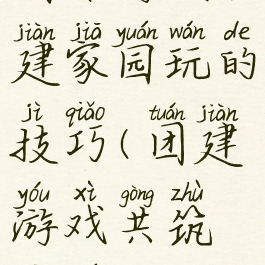 jiàn jiā yuán wán de
建家园玩的
jì qiǎo tuán jiàn
技巧(团建
yóu xì gòng zhù
游戏共筑